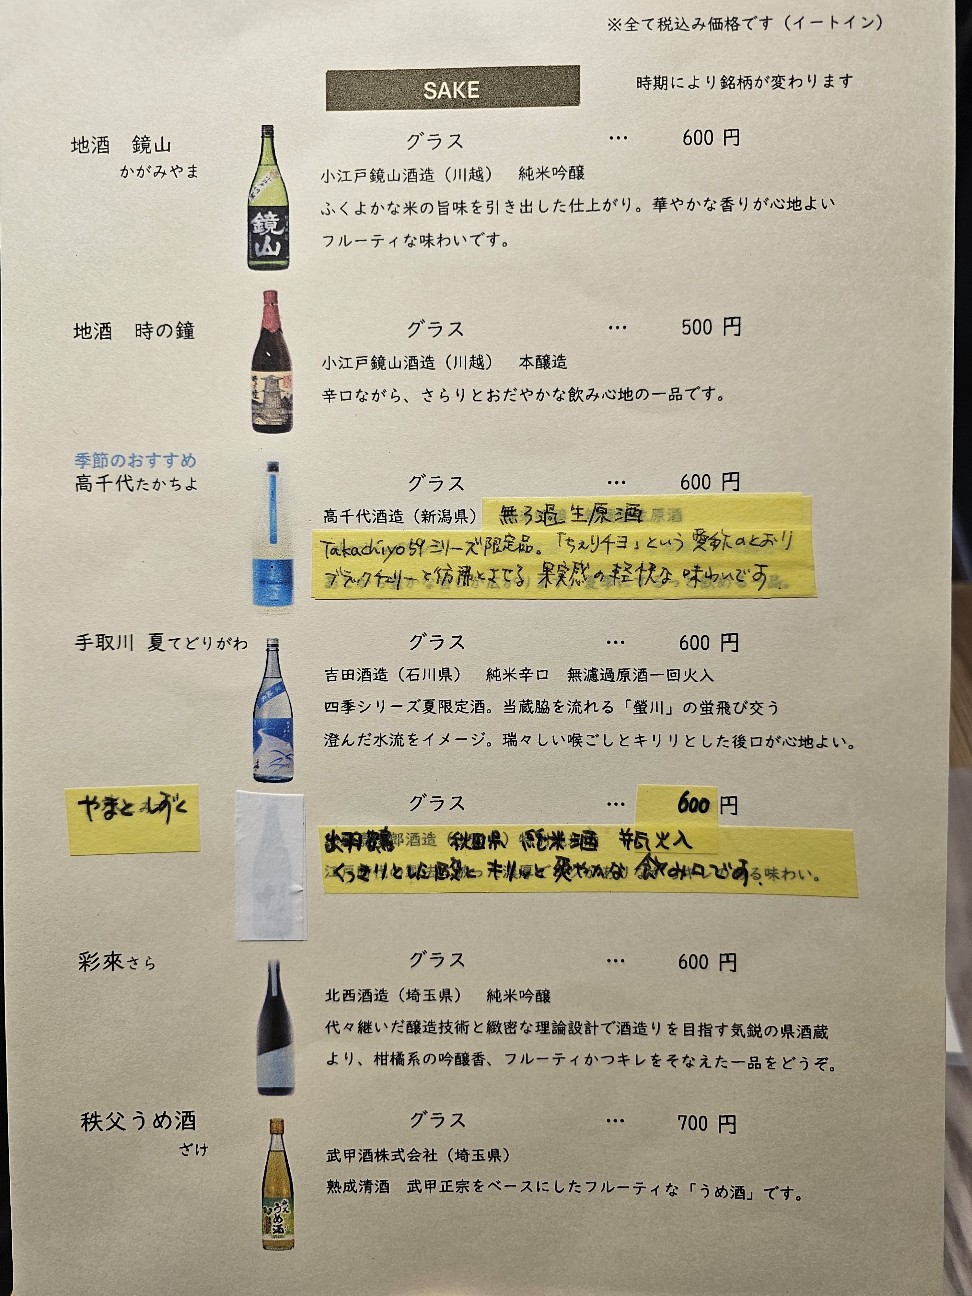 ※全て税込み価格です（イートイン）
SAKE
時期により銘柄が変わります
地酒　鏡山
かがみやま
グラス … 600 円
小江戸鏡山酒造（川越）　純米吟醸
ふくよかな米の旨味を引き出した仕上がり。華やかな香りが心地よい
フルーティな味わいです。
鏡山
地酒　時の鐘
グラス … 500 円
小江戸鏡山酒造（川越）　本醸造
辛口ながら、さらりとおだやかな飲み心地の一品です。
季節のおすすめ
高千代たかちよ
グラス … 600 円
高千代酒造（新潟県）　無ろ過生原酒
Takachiyo59シリーズ限定品。「ちぇりチヨ」という愛称のとおり
ブラックチェリーを彷彿とさせる果実感の軽快な味わいです。
手取川 夏てどりがわ
グラス … 600 円
吉田酒造（石川県）　純米辛口　無濾過原酒一回火入
四季シリーズ夏限定酒。当蔵脇を流れる「螢川」の蛍飛び交う
澄んだ水流をイメージ。瑞々しい喉ごしとキリリとした後口が心地よい。
やまとしずく
グラス … 600 円
出羽鶴　秋田県　純米酒　瓶火入
くっきりとした酸とキリッと爽やかな飲み口です。
味わい。
彩來さら
グラス … 600 円
北西酒造（埼玉県）　純米吟醸
代々継いだ醸造技術と緻密な理論設計で酒造りを目指す気鋭の県酒蔵
より、柑橘系の吟醸香、フルーティかつキレをそなえた一品をどうぞ。
秩父うめ酒
ざけ
グラス … 700 円
武甲酒株式会社（埼玉県）
熟成清酒　武甲正宗をベースにしたフルーティな「うめ酒」です。
うめ酒